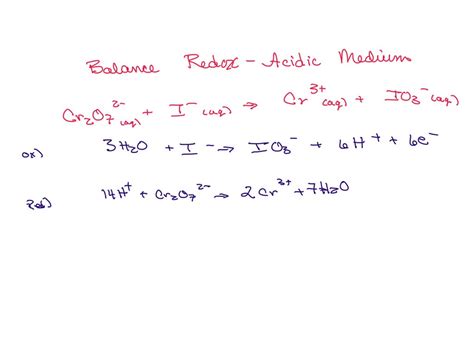 Balance Redox - Acidic Medium
Cr₂O₇²⁻(aq) + I⁻(aq) → Cr³⁺(aq) + IO₃⁻(aq)
ox) 3H₂O + I⁻ → IO₃⁻ + 6H⁺ + 6e⁻
Red) 14H⁺ + Cr₂O₇²⁻ → 2Cr³⁺ + 7H₂O